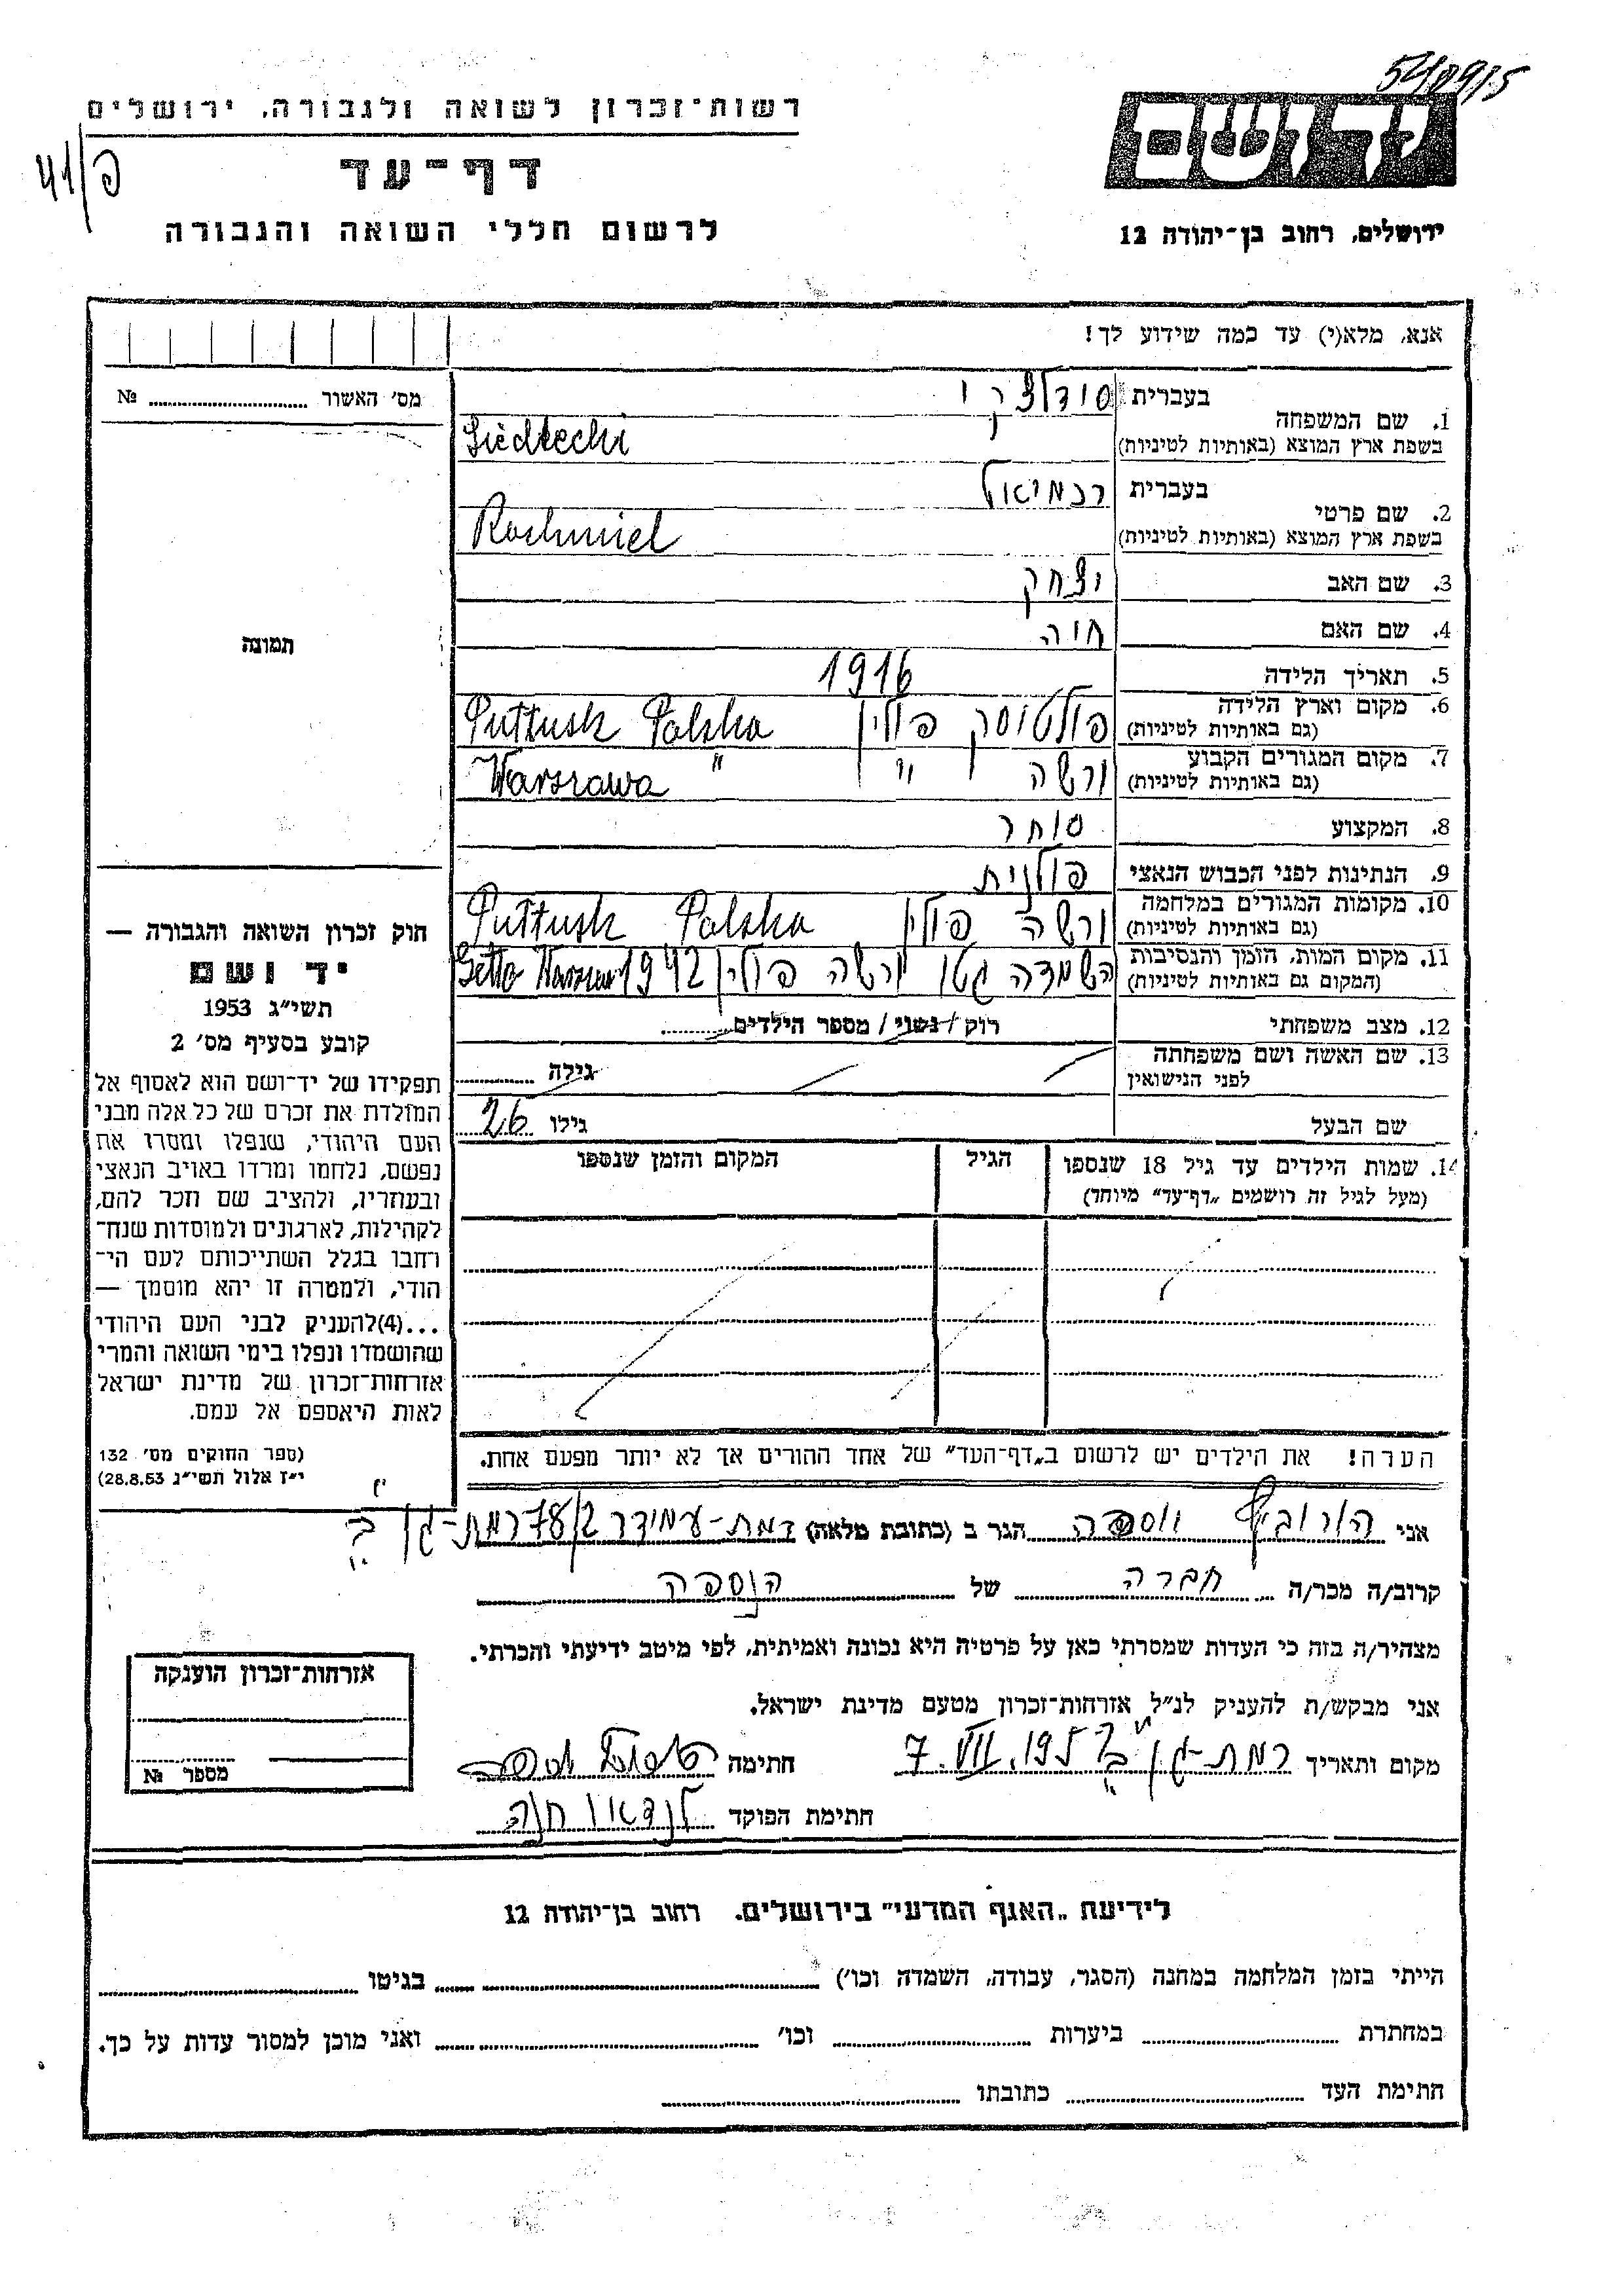 54/0915
רשות־זכרון לשואה ולגבורה, ירושלים
פ/41
דף־עד
לרשום חללי השואה והגבורה
יד ושם
ירושלים, רחוב בן־יהודה 12
אנא, מלא(י) עד כמה שידוע לך!
מס׳ האשור № ..........
1. שם המשפחה
בעברית
בשפת ארץ המוצא (באותיות לטיניות)
Siedlecki
2. שם פרטי
בעברית רכמיאל
בשפת ארץ המוצא (באותיות לטיניות)
Rachmiel
3. שם האב יצחק
4. שם האם חוה
5. תאריך הלידה 1916
6. מקום וארץ הלידה
(גם באותיות לטיניות)
פולטוסק פולין Pułtusk Polska
7. מקום המגורים הקבוע
(גם באותיות לטיניות)
ורשה " Warszawa "
8. המקצוע סוחר
9. הנתינות לפני הכבוש הנאצי פולנית
10. מקומות המגורים במלחמה
(גם באותיות לטיניות)
ורשה פולין Pułtusk Polska
11. מקום המות, הזמן והנסיבות
(המקום גם באותיות לטיניות)
השמדה גטו ורשה פולין 1942 Getto Warszawa
12. מצב משפחתי
רוק / נשוי / מספר הילדים ..........
13. שם האשה ושם משפחתה
לפני הנישואין
גילה ..........
שם הבעל
גילו 26
14. שמות הילדים עד גיל 18 שנספו
(מעל לגיל זה רושמים „דף־עד” מיוחד)
הגיל
המקום והזמן שנספו
תמונה
חוק זכרון השואה והגבורה —
יד ושם
תשי״ג 1953
קובע בסעיף מס׳ 2
תפקידו של יד־ושם הוא לאסוף אל
המולדת את זכרם של כל אלה מבני
העם היהודי, שנפלו ומסרו את
נפשם, נלחמו ומרדו באויב הנאצי
ובעוזריו, ולהציב שם וזכר להם,
לקהילות, לארגונים ולמוסדות שנח־
רחבו בגלל השתייכותם לעם הי־
הודי, ולמטרה זו יהא מוסמך —
...(4)להעניק לבני העם היהודי
שהושמדו ונפלו בימי השואה והמרי
אזרחות־זכרון של מדינת ישראל
לאות היאספם אל עמם.
(ספר החוקים מס׳ 132
י״ז אלול תשי״ג 28.8.53)
הערה! את הילדים יש לרשום ב„דף־העד” של אחד ההורים אך לא יותר מפעם אחת.
אני הורוביץ יוספה הגר ב (כתובת מלאה) רמת-עמידר 78/2 רמת-גן ב׳
קרוב/ה מכר/ה חברה של הנספה
מצהיר/ה בזה כי העדות שמסרתי כאן על פרטיה היא נכונה ואמיתית, לפי מיטב ידיעתי והכרתי.
אני מבקש/ת להעניק לנ״ל אזרחות־זכרון מטעם מדינת ישראל.
מקום ותאריך רמת-גן ב׳ 7.VII.195 חתימה
חתימת הפוקד לנדאו חנה
אזרחות־זכרון הוענקה
מספר №
לידיעת „האגף המדעי” בירושלים. רחוב בן־יהודה 12
הייתי בזמן המלחמה במחנה (הסגר, עבודה, השמדה וכו׳) .......... בגיטו ..........
במחתרת .......... ביערות .......... וכו׳ .......... ואני מוכן למסור עדות על כך.
חתימת העד .......... כתובתו ..........